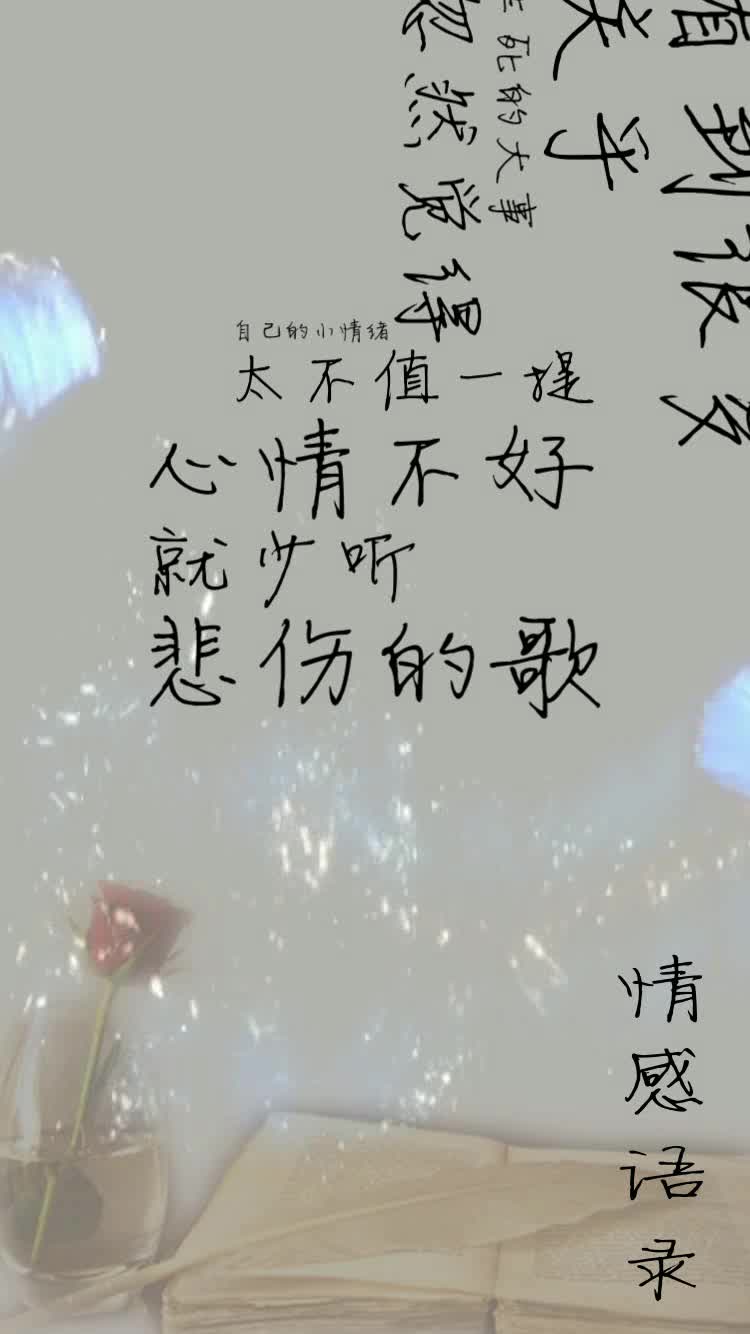 到很多
关乎
死的大事
忽然觉得
自己的小情绪
太不值一提
心情不好
就少听
悲伤的歌
情感语录